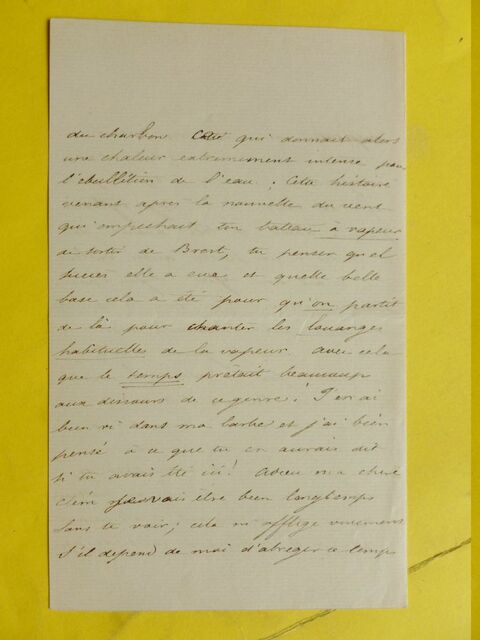 du charbon qui donnait alors
une chaleur extremement intense pour
l'ebullition de l'eau ; Cette histoire
venant après la nouvelle du vent
qui empechait ton bateau à vapeur
de sortir de Brest, tu penser quel
succes elle a eue et quelle belle
base cela a été pour qu'on partit
de là pour chanter les louanges
habituelles de la vapeur. Avec cela
que le temps prétait beaucoup
aux discours de ce genre ! J'en ai
bien ri dans ma barbe et j'ai bien
pensé à ce que tu en aurais dit
si tu avais été ici ! Adieu ma chere
Clém je vais etre bien longtemps
sans te voir ; cela m'afflige vivement
S'il depend de moi d'abreger ce temps